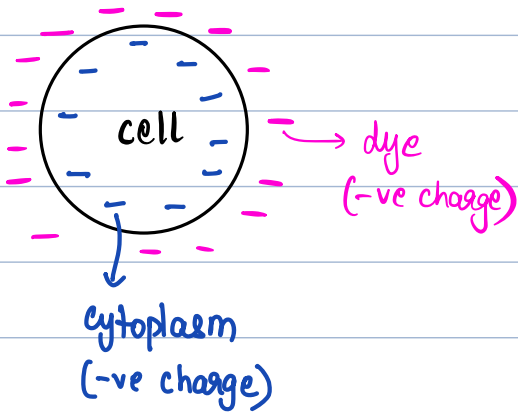 cell
dye
(-ve charge)
cytoplasm
(-ve charge)